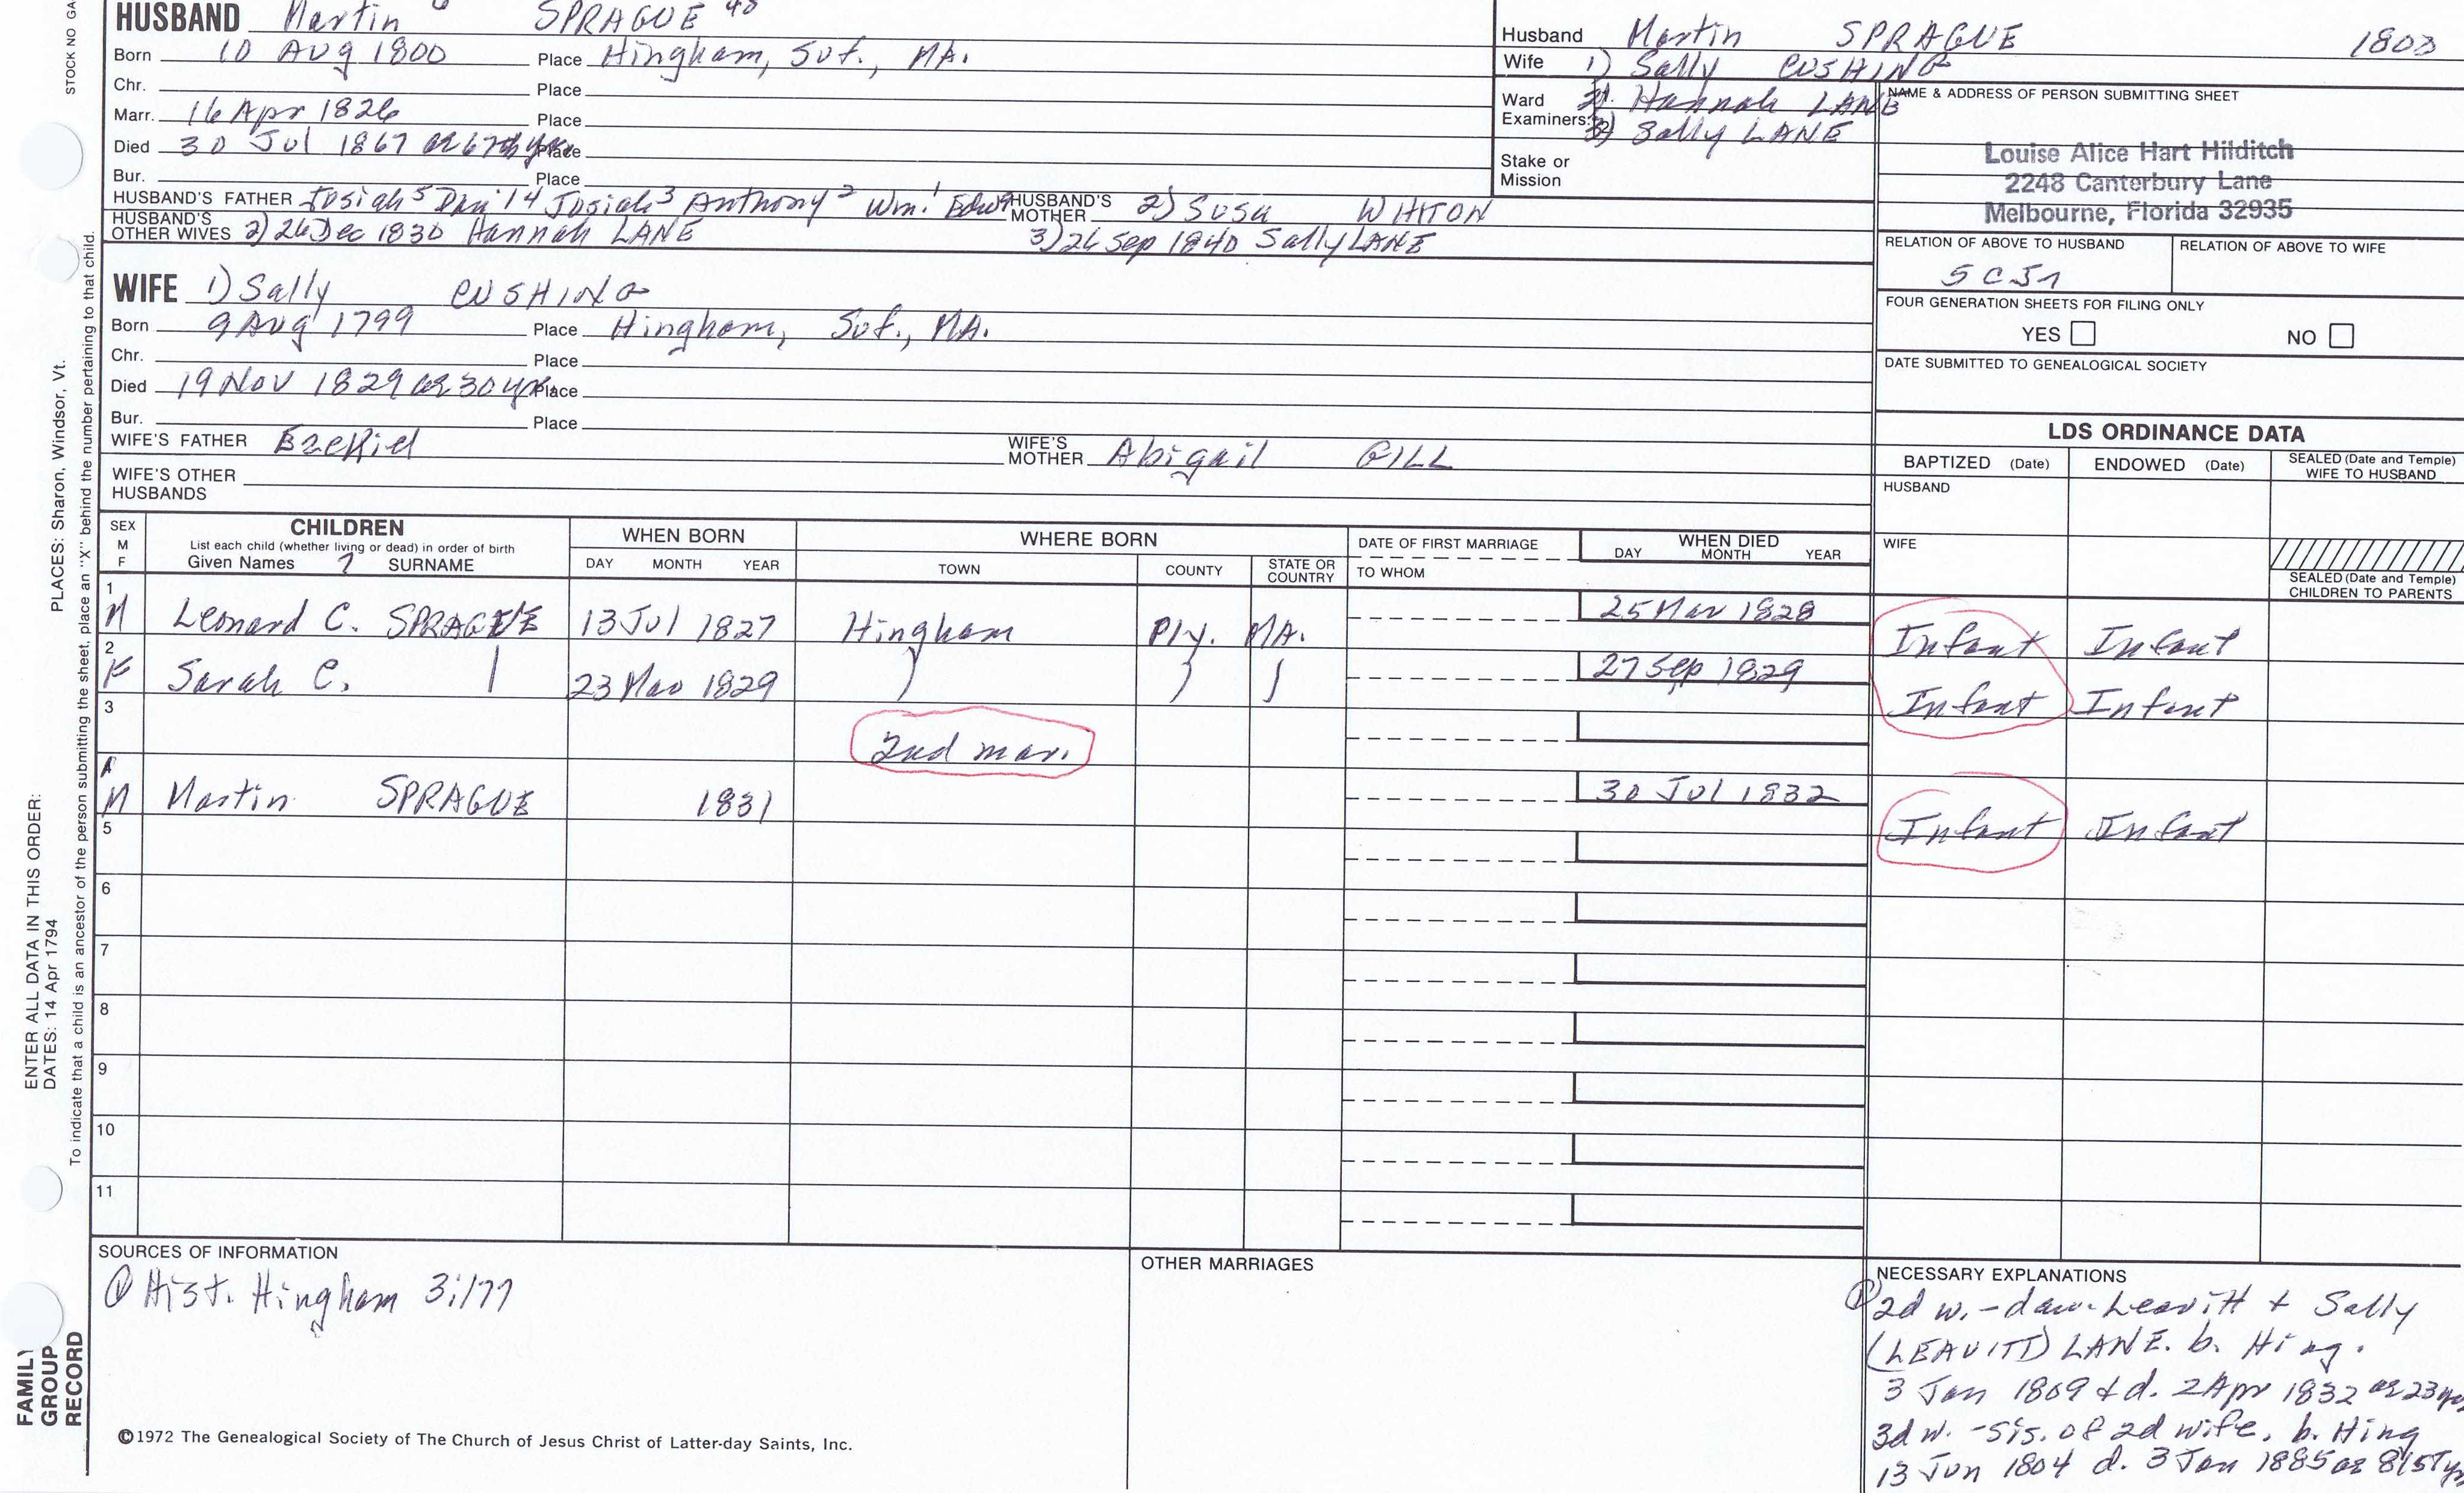 HUSBAND Martin 6 SPRAGUE 40
Born 10 Aug 1800 Place Hingham, Suf., MA.
Chr. Place
Marr. 16 Apr 1826 Place
Died 30 Jul 1867 Place
Bur. Place
HUSBAND'S FATHER Josiah 5 Dan'l 4 Josiah 3 Anthony 2 Wm. 1 HUSBAND'S MOTHER 2) Susa WHITON
HUSBAND'S OTHER WIVES 2) 26 Dec 1830 Hannah LANE 3) 26 Sep 1840 Sally LANE
WIFE 1) Sally CUSHING
Born 9 Aug 1799 Place Hingham, Suf., MA.
Chr. Place
Died 19 Nov 1829 ae 30 yr Place
Bur. Place
WIFE'S FATHER Ezekiel WIFE'S MOTHER Abigail GILL
WIFE'S OTHER HUSBANDS
Husband Martin SPRAGUE 1800
Wife 1) Sally CUSHING
Ward 2). Hannah LANE
Examiners: 3) Sally LANE
Stake or Mission
NAME & ADDRESS OF PERSON SUBMITTING SHEET
Louise Alice Hart Hilditch
2248 Canterbury Lane
Melbourne, Florida 32935
RELATION OF ABOVE TO HUSBAND RELATION OF ABOVE TO WIFE
FOUR GENERATION SHEETS FOR FILING ONLY
YES NO
DATE SUBMITTED TO GENEALOGICAL SOCIETY
LDS ORDINANCE DATA
BAPTIZED (Date) ENDOWED (Date) SEALED (Date and Temple) WIFE TO HUSBAND
HUSBAND
WIFE
SEALED (Date and Temple) CHILDREN TO PARENTS
SEX M F CHILDREN WHEN BORN WHERE BORN DATE OF FIRST MARRIAGE WHEN DIED
List each child (whether living or dead) in order of birth
Given Names 7 SURNAME DAY MONTH YEAR TOWN COUNTY STATE OR COUNTRY TO WHOM DAY MONTH YEAR
1 M Leonard C. SPRAGUE 13 Jul 1827 Hingham Ply. MA. 25 Mar 1828 Infant Infant
2 F Sarah C. 23 Mar 1829 27 Sep 1829 Infant Infant
3 2nd mar.
4 M Martin SPRAGUE 1831 30 Jul 1832 Infant Infant
5
6
7
8
9
10
11
SOURCES OF INFORMATION
① Hist. Hingham 3:177
OTHER MARRIAGES
NECESSARY EXPLANATIONS
① 2d w.-dau. Leavitt + Sally
(LEAVITT) LANE. b. Hing.
3 Jan 1809 & d. 2 Apr 1832 ae 23
3d w. -sis. of 2d wife. b. Hing
13 Jun 1804 d. 3 Jan 1885 ae
©1972 The Genealogical Society of The Church of Jesus Christ of Latter-day Saints, Inc.
STOCK NO GA
PLACES: Sharon, Windsor, Vt.
To indicate that a child is an ancestor of the person submitting the sheet, place an "X" behind the number pertaining to that child.
ENTER ALL DATA IN THIS ORDER:
DATES: 14 Apr 1794
FAMILY GROUP RECORD